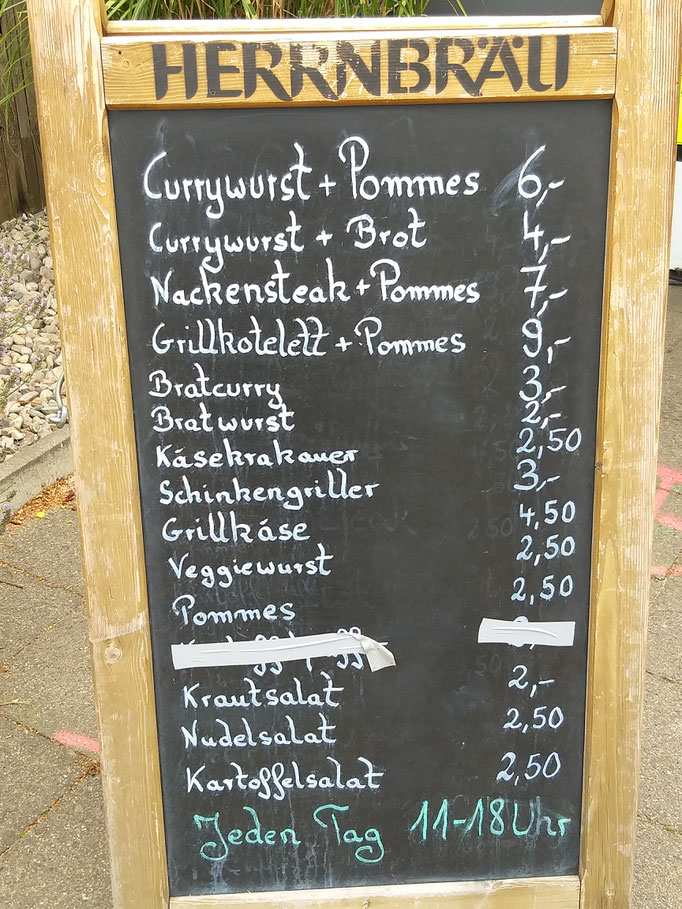 HERRNBRÄU
Currywurst + Pommes 6,-
Currywurst + Brot 4,-
Nackensteak + Pommes 7,-
Grillkotelett + Pommes 9,-
Bratcurry 3,-
Bratwurst 2,-
Käsekrakauer 2,50
Schinkengriller 3,-
Grillkäse 4,50
Veggiewurst 2,50
Pommes 2,50
Krautsalat 2,-
Nudelsalat 2,50
Kartoffelsalat 2,50
Jeden Tag 11-18 Uhr